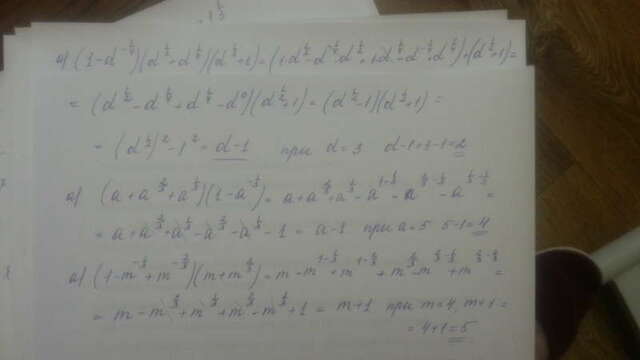 (1-d^{-1/4})(d^{1/2}+d^{1/4})(d^{1/2}+1)=(1·d^{1/2}-d^{-1/4}·d^{1/2}+1·d^{1/4}-d^{-1/4}·d^{1/4})·(d^{1/2}+1)=
=(d^{1/2}-d^{1/4}+d^{1/4}-d^0)(d^{1/2}+1)=(d^{1/2}-1)(d^{1/2}+1)=
=(d^{1/2})^2-1^2=d-1 при d=3 d-1=3-1=2
(a+a^{2/3}+a^{1/3})(1-a^{-1/3})=a+a^{2/3}+a^{1/3}-a^{1-1/3}-a^{2/3-1/3}-a^{1/3-1/3}=
=a+a^{2/3}+a^{1/3}-a^{2/3}-a^{1/3}-1=a-1 при a=5 5-1=4
(1-m^{-1/3}+m^{-2/3})(m+m^{2/3})=m-m^{1-1/3}+m^{1-2/3}+m^{2/3}-m^{2/3-1/3}+m^{2/3-2/3}=
=m-m^{2/3}+m^{1/3}+m^{2/3}-m^{1/3}+1=m+1 при m=4, m+1=
=4+1=5